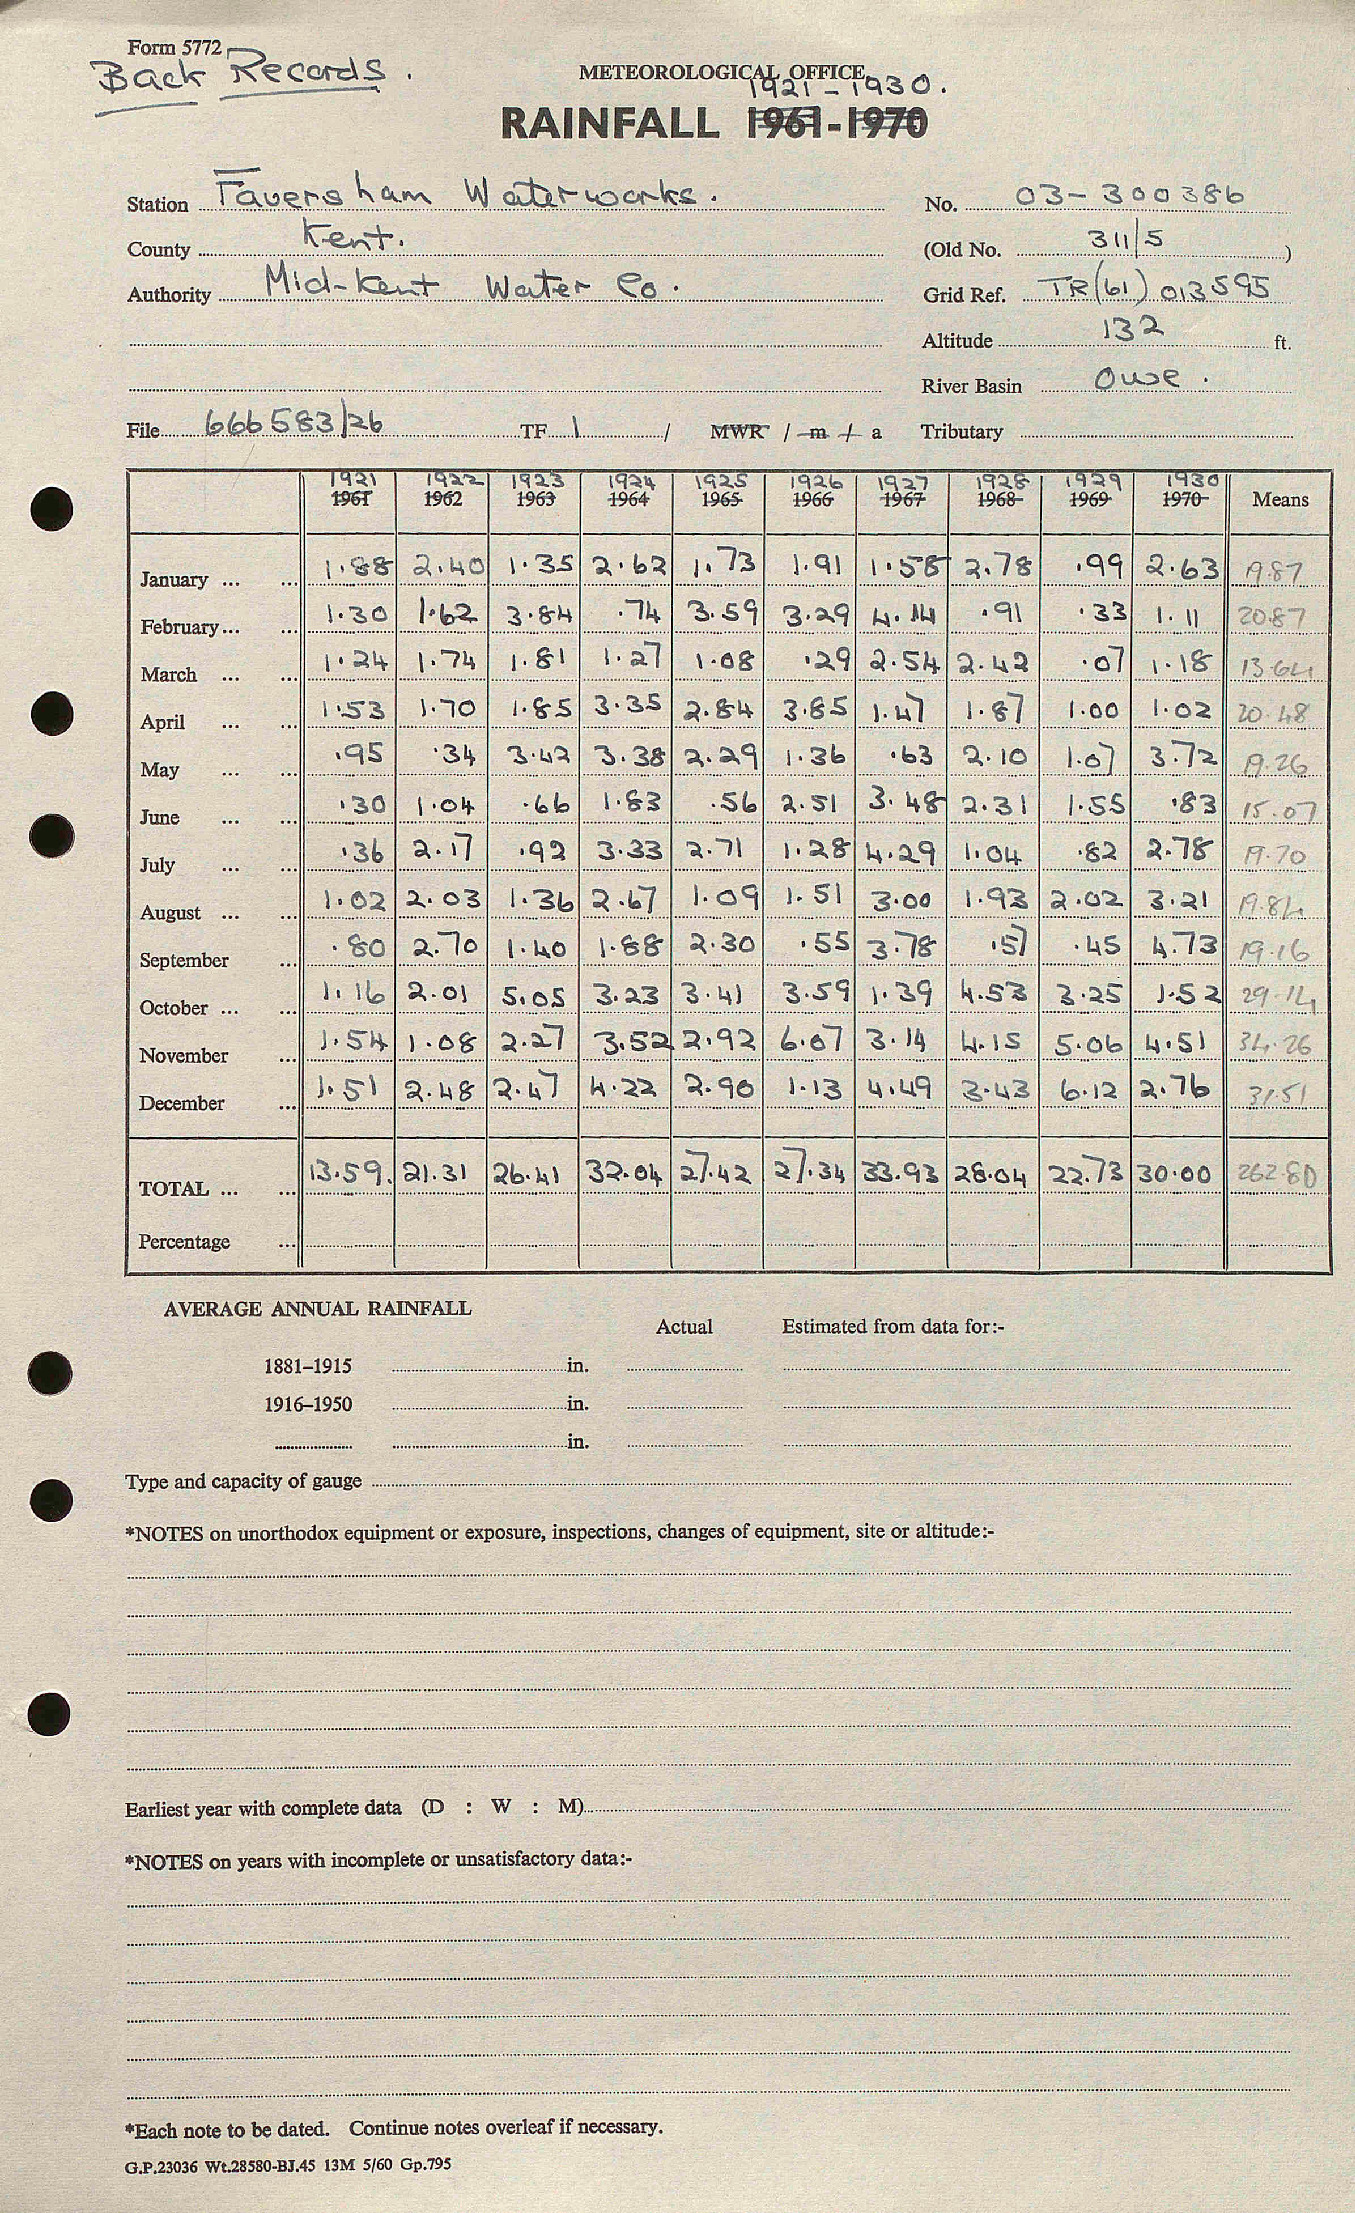 Form 5772
Back Records.
METEOROLOGICAL OFFICE
1921-1930.
RAINFALL 1961-1970
Station Faversham Waterworks. No. 03-300386
County Kent. (Old No. 311/5 )
Authority Mid-Kent Water Co. Grid Ref. TR(61) 013595
Altitude 132 ft.
River Basin Owse.
File 666583/26 TF 1 / MWR / m / a Tributary
1921 1922 1923 1924 1925 1926 1927 1928 1929 1930
1961 1962 1963 1964 1965 1966 1967 1968 1969 1970 Means
January ... ... 1.88 2.40 1.35 2.62 1.73 1.91 1.58 2.78 .99 2.63 19.87
February ... ... 1.30 1.62 3.84 .74 3.59 3.29 4.14 .91 .33 1.11 20.87
March ... ... 1.24 1.74 1.81 1.27 1.08 .29 2.54 2.42 .07 1.18 13.64
April ... ... 1.53 1.70 1.85 3.35 2.84 3.85 1.47 1.87 1.00 1.02 20.48
May ... ... .95 .34 3.42 3.38 2.29 1.36 .63 2.10 1.07 3.72 19.26
June ... ... .30 1.04 .66 1.83 .56 2.51 3.48 2.31 1.55 .83 15.07
July ... ... .36 2.17 .92 3.33 2.71 1.28 4.29 1.04 .82 2.78 19.70
August ... ... 1.02 2.03 1.36 2.67 1.09 1.51 3.00 1.93 2.02 3.21 19.84
September ... .80 2.70 1.40 1.88 2.30 .55 3.78 .57 .45 4.73 19.16
October ... ... 1.16 2.01 5.05 3.23 3.41 3.59 1.39 4.53 3.25 1.52 29.14
November ... 1.54 1.08 2.27 3.52 2.92 6.07 3.14 4.15 5.06 4.51 34.26
December ... 1.51 2.48 2.47 4.22 2.90 1.13 4.49 3.43 6.12 2.76 31.51
TOTAL ... ... 13.59. 21.31 26.41 32.04 27.42 27.34 33.93 28.04 22.73 30.00 262.80
Percentage ...
AVERAGE ANNUAL RAINFALL
Actual Estimated from data for:-
1881-1915 in.
1916-1950 in.
in.
Type and capacity of gauge
*NOTES on unorthodox equipment or exposure, inspections, changes of equipment, site or altitude:-
Earliest year with complete data (D : W : M)
*NOTES on years with incomplete or unsatisfactory data:-
*Each note to be dated. Continue notes overleaf if necessary.
G.P.23036 Wt.28580-BJ.45 13M 5/60 Gp.795